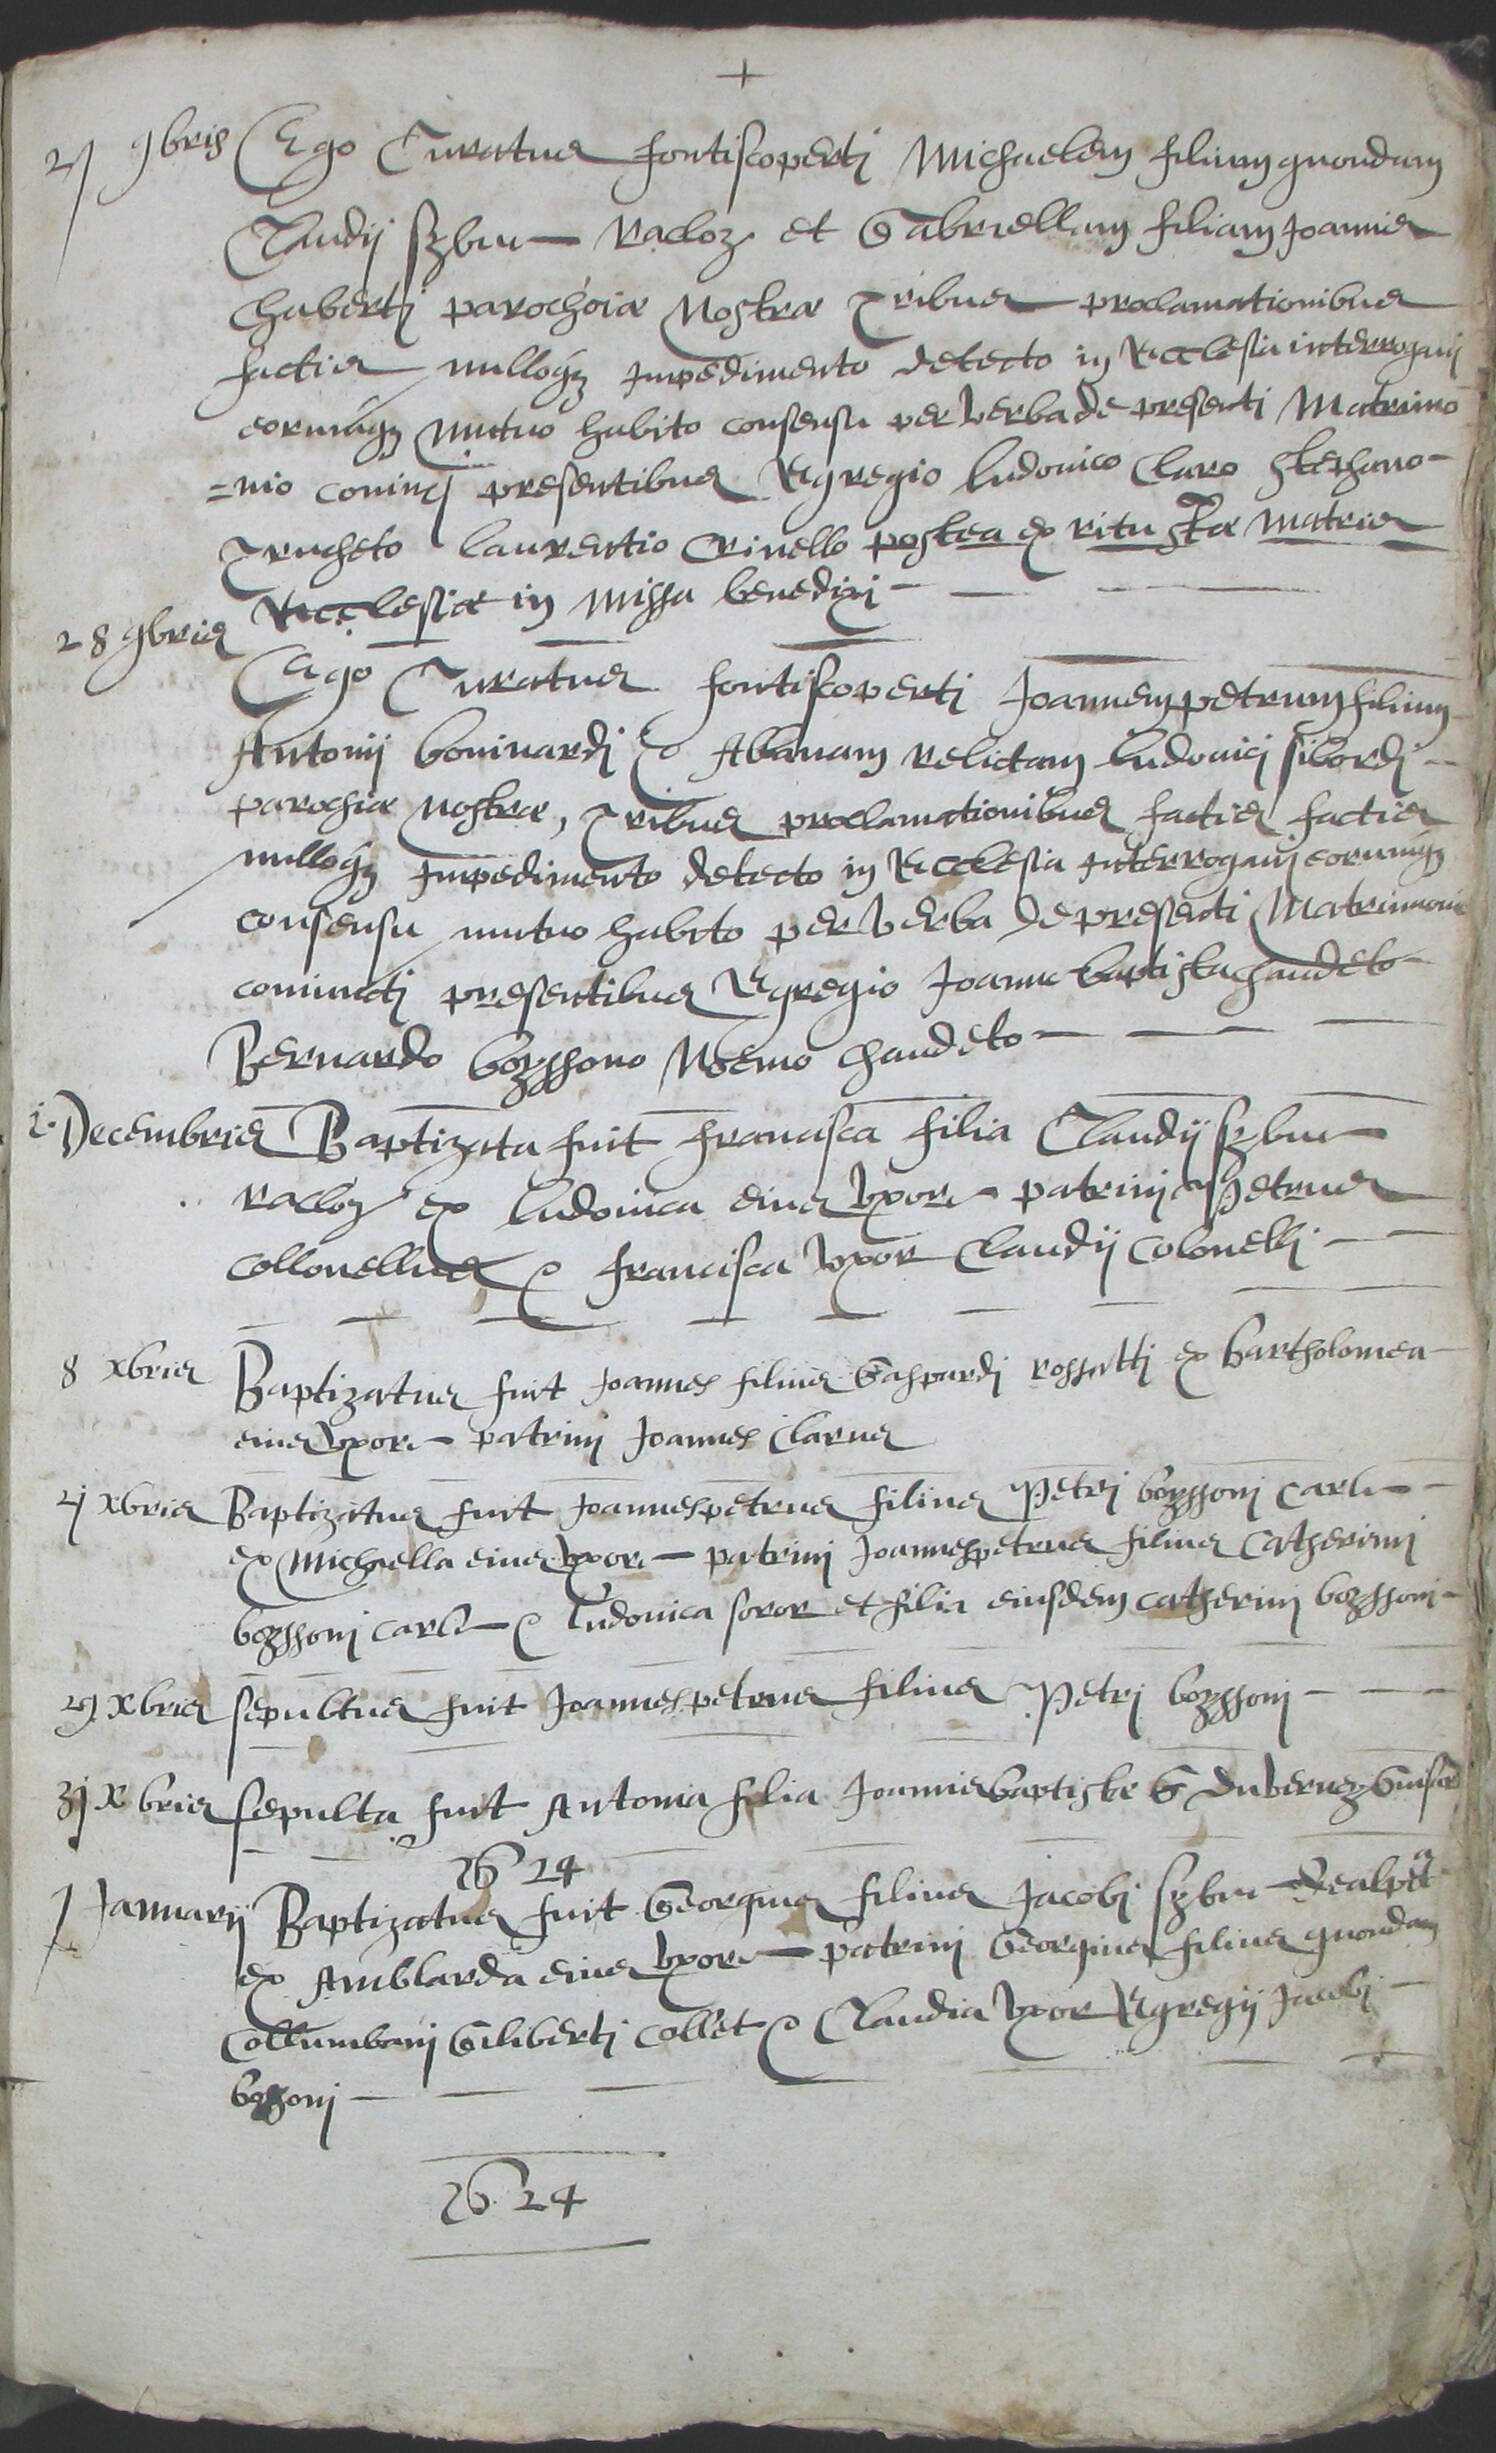 +
9bris Ego Curatus fontiscoperti Michaelem filium quondam
Claudij Racloz et Gabriellam filiam Joannis
huberti parochoiæ Nostræ Tribus proclamationibus
factis nulloq3 Impedimento detecto in Ecclesia interrogavi
eorumq3 Mutuo habito consensu per verba de presenti Matrimo
=nio coniunxi presentibus Egregio ludovico Claro Stephano
Trucheto laurentio Crinello postea ex ritu stæ Matris
Ecclesiæ in Missa benedixi
28 9bris Ego Curatus fontiscoperti Joannem petrum filium
Antonij bonivardi & Abanam relictam ludovici
parochiæ Nostræ, Tribus proclamationibus factis factis
nulloq3 Impedimento detecto in Ecclesia Interrogavi eorumq3
consensu mutuo habito per verba de presenti Matrimonio
coniuncti presentibus Egregio Joanne baptista chaudeto
Bernardo bozssono Noemo chaudeto
i. Decembris Baptizata fuit francisca filia Claudij
racloz ex ludovica eius uxore patrini Petrus
Collonellus & francisca uxor Claudij Colonelli
8 xbris Baptizatus fuit Joannes filius Gaspardi rossatti ex bartholomea
eius uxore patrini Joannes Clarus
2j xbris Baptizatus fuit Joannespetrus filius Petri bozssoni Carli
ex Michaella eius uxore patrini Joannespetrus filius Catherini
bozssoni Carli & ludovica soror et filia eiusdem Catherini bozssoni
29 xbris sepultus fuit Joannespetrus filius Petri bozssoni
3j xbris sepulta fuit Antonia filia Joannisbaptistæ G duvernez
1624
1 Januarij Baptizatus fuit Georgius filius Jacobi
ex Amblarda eius uxore patrini Georgius filius quondam
Collumbani Giliberti Collet & Claudia uxor Egregij Jacobi
bozsoni
1624